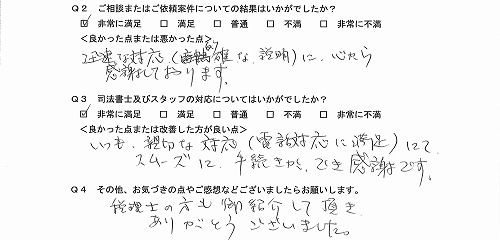 Q2 ご相談またはご依頼案件についての結果はいかがでしたか?
☑ 非常に満足 □ 満足 □ 普通 □ 不満 □ 非常に不満
<良かった点または悪かった点>
迅速な対応、(的確な、説明)に、心から
感謝しております。
Q3 司法書士及びスタッフの対応についてはいかがでしたか?
☑ 非常に満足 □ 満足 □ 普通 □ 不満 □ 非常に不満
<良かった点または改善した方が良い点>
いつも、親切な対応(電話対応に満足)にて
スムーズに、手続きが、でき感謝です。
Q4 その他、お気づきの点やご感想などございましたらお願いします。
税理士の方も御紹介して頂き
ありがとうございました。